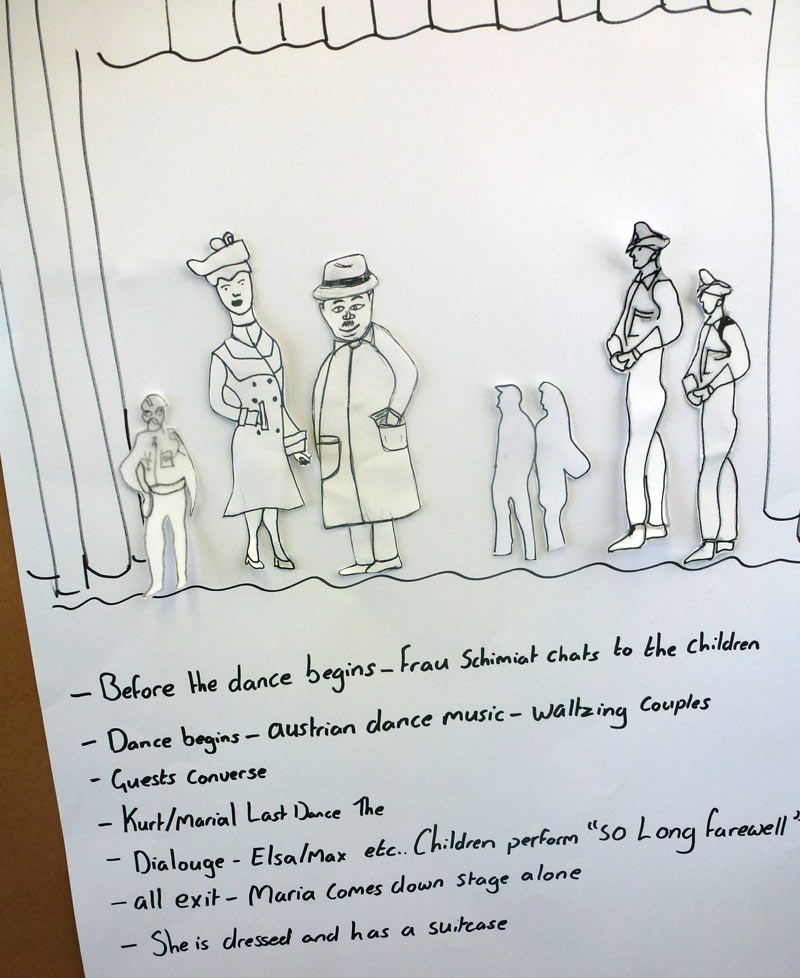 - Before the dance begins - Frau Schimiat chats to the children
- Dance begins - austrian dance music - waltzing Couples
- Guests Converse
- Kurt/Marial Last Dance The
- Dialouge - Elsa/Max etc.. Children perform "so Long farewell"
- all exit - Maria comes down stage alone
- She is dressed and has a suitcase